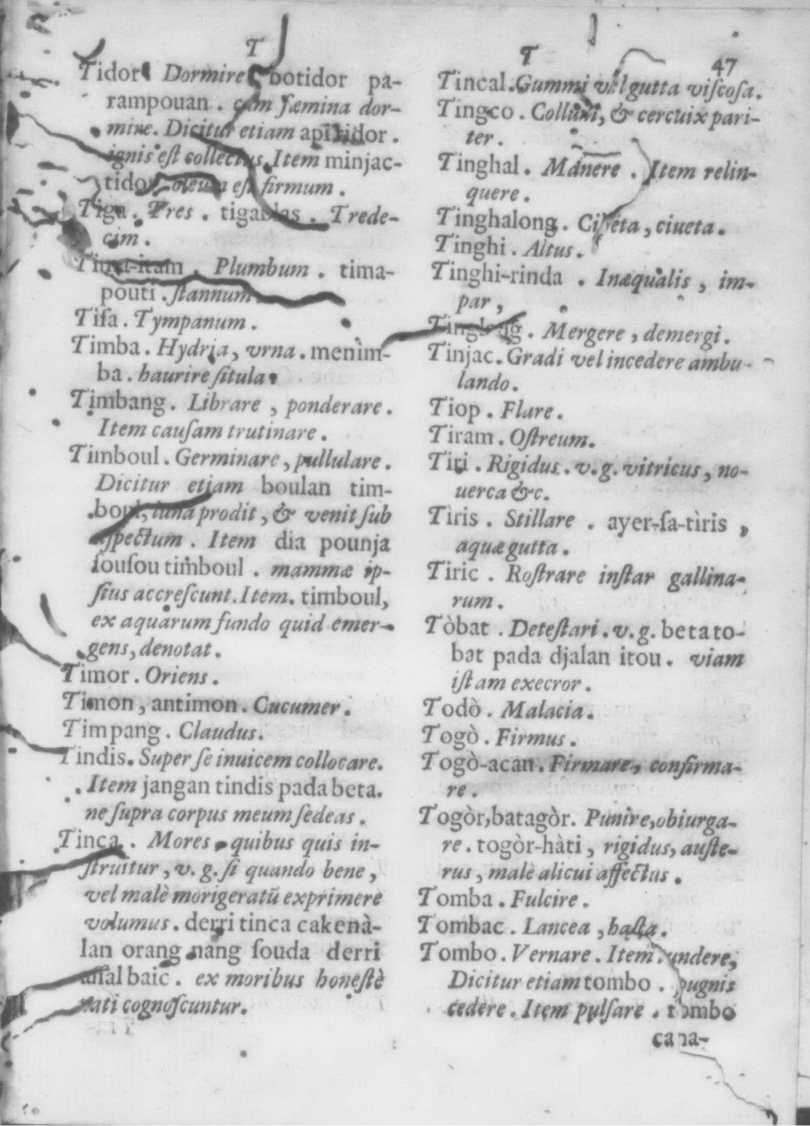 T
Tidor. Dormire. botidor pa-
rampouan. cum fæmina dor-
mire. Dicitur etiam api tidor.
ignis eſt collectus. Item minjac-
tidor. oleum eſt firmum.
Tiga. Tres. tigablas. Trede-
cim.
Tima-itam. Plumbum. tima-
pouti. ſtannum
Tifa. Tympanum.
Timba. Hydria, vrna. menìm-
ba. haurire ſitula.
Timbang. Librare, ponderare.
Item cauſam trutinare.
Timboul. Germinare, pullulare.
Dicitur etiam boulan tim-
boul, luna prodit, & venit ſub
aſpectum. Item dia pounja
ſouſou timboul. mammæ ip-
ſius accreſcunt. Item. timboul,
ex aquarum fundo quid emer-
gens, denotat.
Timor. Oriens.
Timon, antimon. Cucumer.
Timpang. Claudus.
Tindis. Super ſe inuicem collocare.
Item jangan tindis pada beta.
ne ſupra corpus meum ſedeas.
Tinca. Mores, quibus quis in-
ſtruitur, v. g. ſi quando bene,
vel malè morigeratũ exprimere
volumus. derri tinca cakenà-
lan orang nang ſouda derri
aſſal baic. ex moribus honeſtè
nati cognoſcuntur.
T
47
Tincal. Gummi vel gutta viſcoſa.
Tingco. Collum, & ceruix pari-
ter.
Tinghal. Manere. Item relin-
quere.
Tinghalong. Cibeta, ciueta.
Tinghi. Altus.
Tinghi-rinda. Inæqualis, im-
par,
Mergere, demergi.
Tinjac. Gradi vel incedere ambu-
lando.
Tiop. Flare.
Tiram. Oſtreum.
Tiri. Rigidus. v. g. vitricus, no-
uerca &c.
Tìris. Stillare. ayer-ſa-tìris,
aquæ gutta.
Tiric. Roſtrare inſtar gallina-
rum.
Tòbat. Deteſtari. v. g. beta to-
bat pada djalan itou. viam
iſtam execror.
Todò. Malacia.
Togò. Firmus.
Togò-acan. Firmare, confirma-
re.
Togòr, batagòr. Punire, obiurga-
re. togòr-hàti, rigidus, auſte-
rus, malè alicui affectus.
Tomba. Fulcire.
Tombac. Lancea, haſta.
Tombo. Vernare. Item. undere,
Dicitur etiam tombo. pugnis
cedere. Item pulſare. tombo
cana-